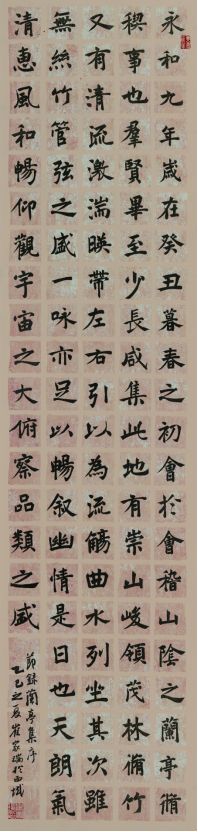 永和九年歲在癸丑暮春之初會於會稽山陰之蘭亭脩
稧事也羣賢畢至少長咸集此地有崇山峻領茂林脩竹
又有清流激湍暎帶左右引以為流觴曲水列坐其次雖
無絲竹管弦之盛一咏亦足以暢叙幽情是日也天朗氣
清惠風和暢仰觀宇宙之大俯察品類之盛
節錄蘭亭集序
乙巳之夏崔家瑞於西